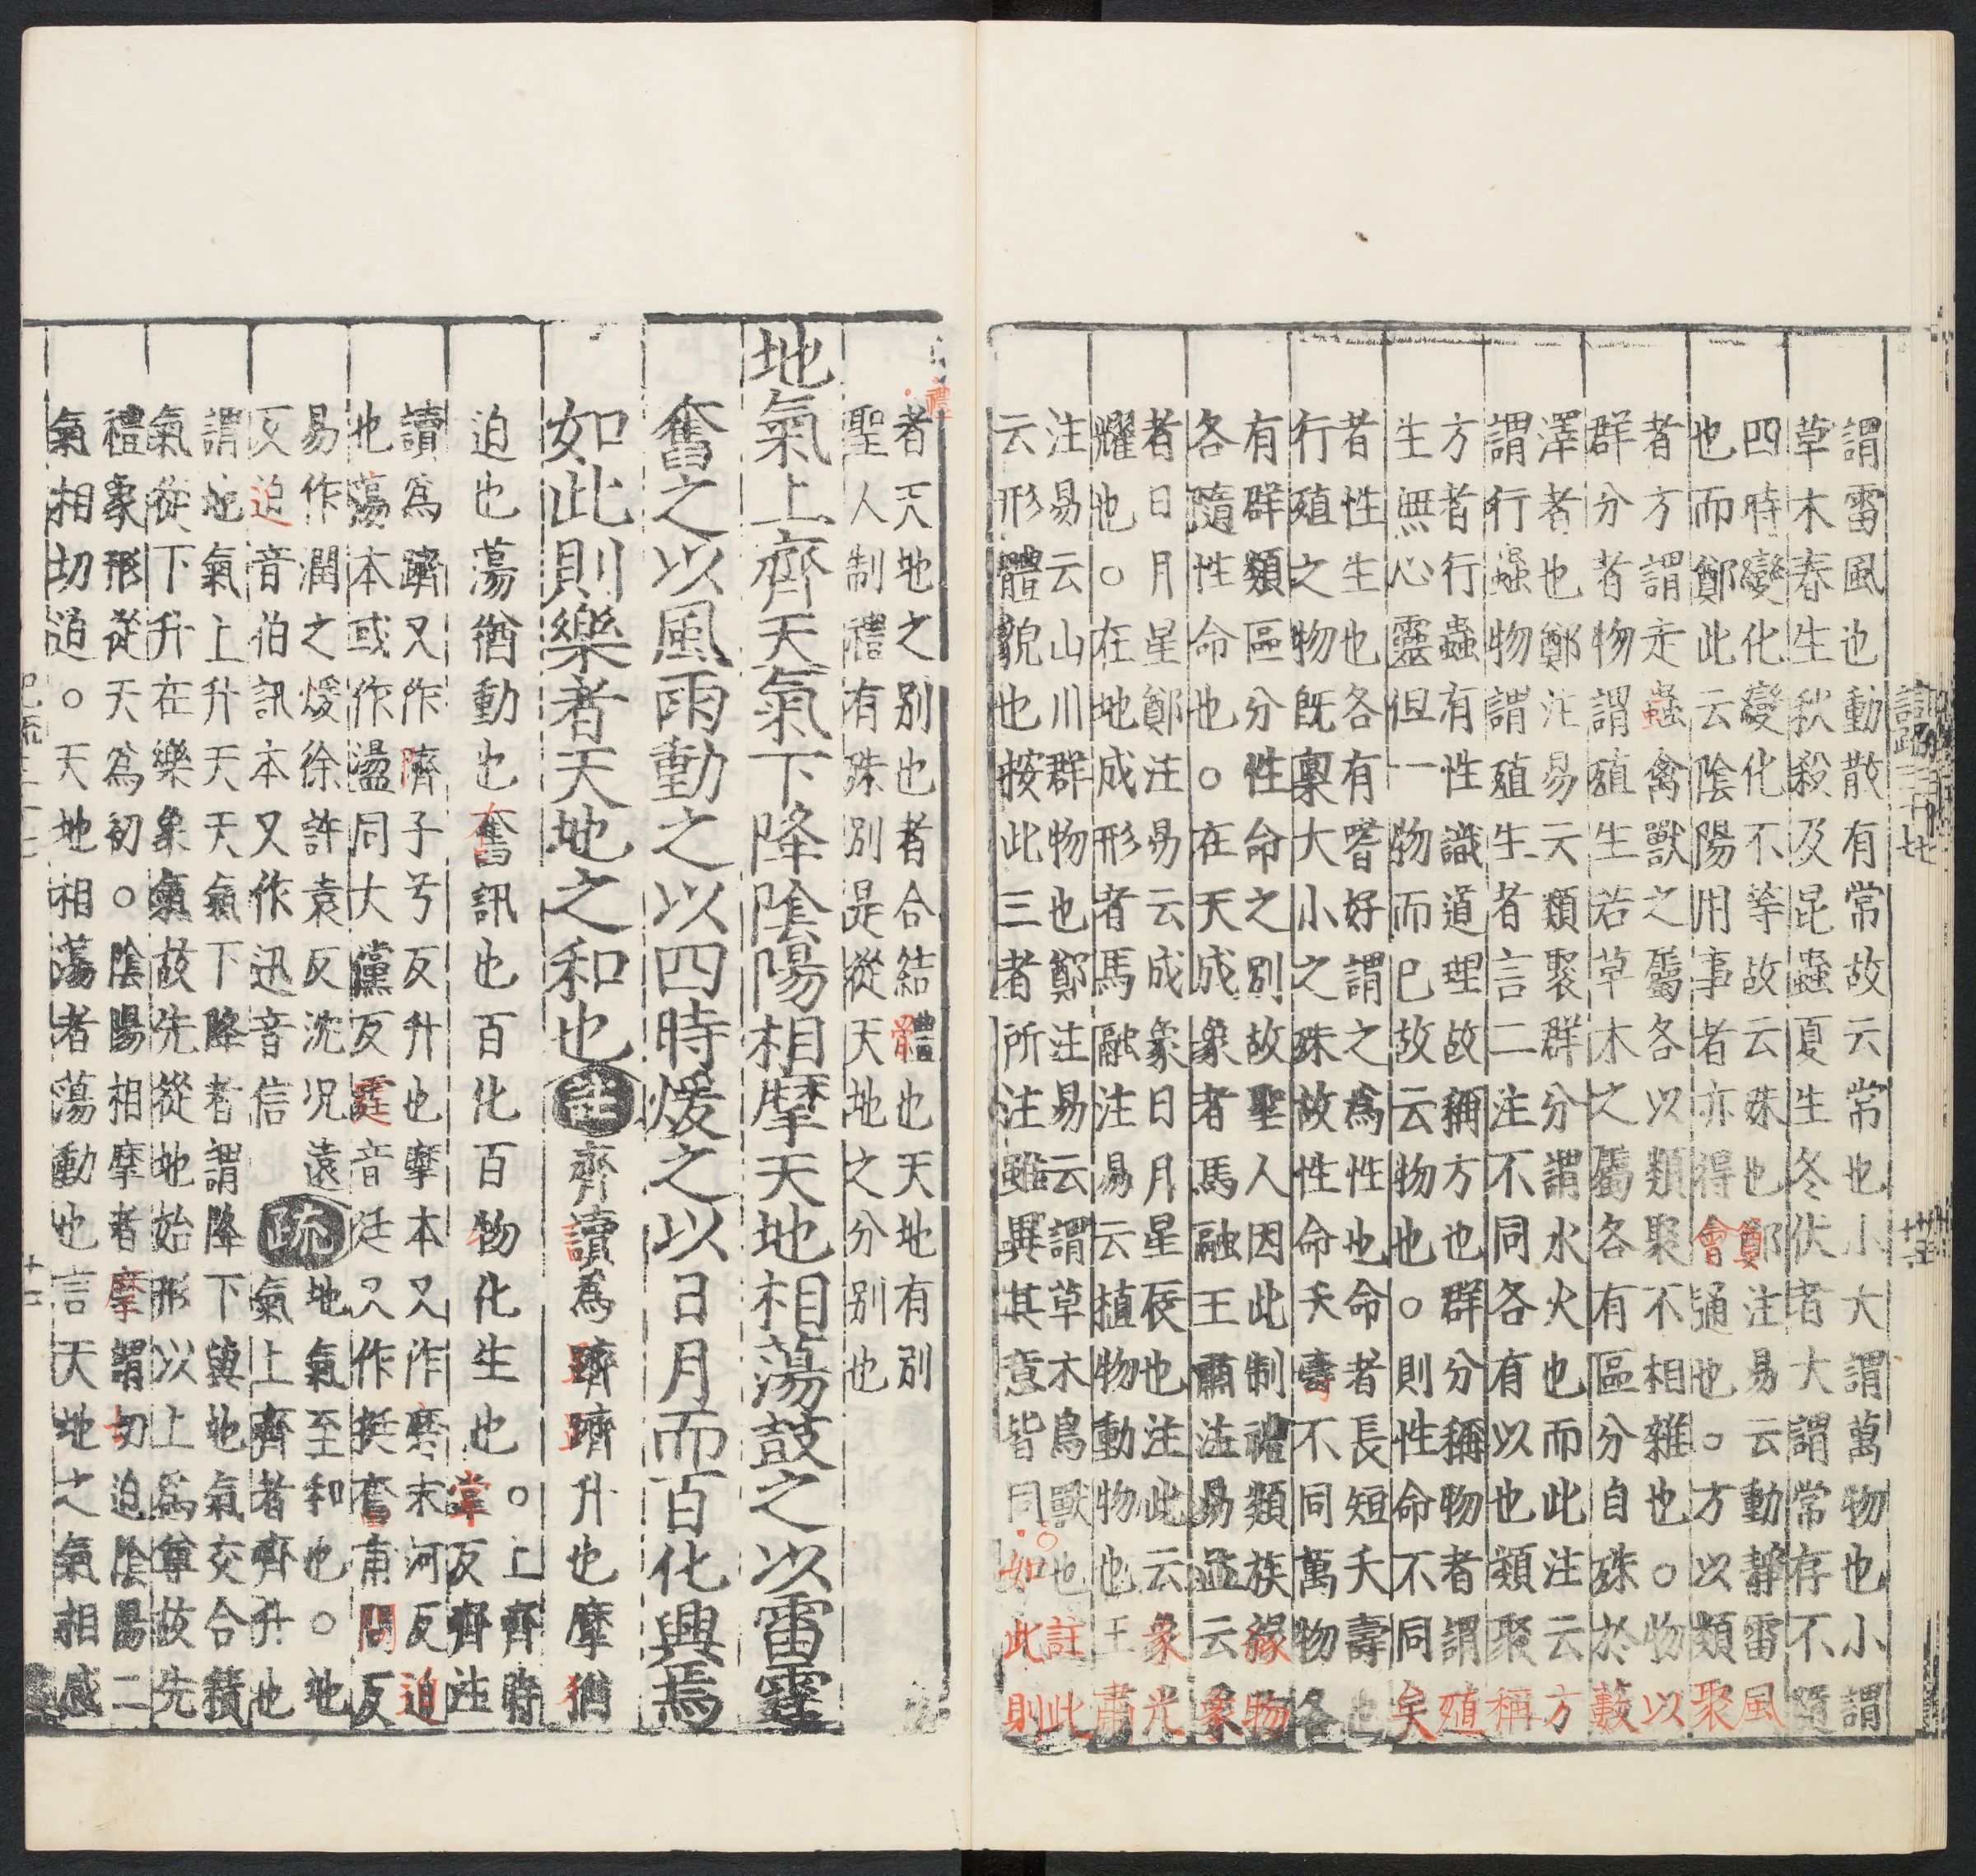 謂雷風也動散有常故云常也小大謂萬物也小謂
草木春生秋殺及昆蟲夏生冬伏者大謂常存不隨
四時變化變化不等故云殊也鄭注易云動靜雷風
也而鄭此云陰陽用事者亦得會通也。方以類聚
者方謂走蟲禽獸之屬各以類聚不相雜也。物以
群分者物謂殖生若草木之屬各有區分自殊於藪
澤者也鄭注易云類聚群分謂水火也而此注云方
謂行蟲物謂殖生者言二注不同各有以也類聚稱
方者行蟲有性識道理故稱方也群分稱物者謂殖
生無心靈但一物而已故云物也。則性命不同矣
者性生也各有嗜好謂之為性也命者長短夭壽也
行殖之物既稟大小之殊故性命夭壽不同萬物各
有群類區分性命之別故聖人因此制禮類族緣物
各隨性命也。在天成象者馬融王肅注易並云象
者日月星鄭注易云成象日月星辰也注此云象光
耀也。在地成形者馬融注易云植物動物也王肅
注易云山川群物也鄭注易云謂草木鳥獸也註此
云形體貌也按此三者所注雖異其意皆同。如此則
註疏三十七
十二
禮
者天地之別也者合結禮也天地有別
聖人制禮有殊別是從天地之分別也
地氣上齊天氣下降陰陽相摩天地相蕩鼓之以雷霆
奮之以風雨動之以四時煖之以日月而百化興焉
如此則樂者天地之和也註齊讀為躋躋升也摩猶
迫也蕩猶動也奮訊也百化百物化生也。上齊時
掌反齊注
讀為躋又作隮子兮反升也摩本又作𪎭末河反迫
也蕩本或作盪同大黨反霆音廷又作挺奮甫問反
易作潤之煖徐許袁反沈況遠
反迫音伯訊本又作迅音信疏地氣至和也。地
氣上齊者齊升也
謂地氣上升天天天氣下降者謂降下與地氣交合積
氣從下升在樂象氣故先從地始形以上為尊故先
禮象形從天為初。陰陽相摩者摩謂切迫陰陽二
氣相切迫。天地相蕩者蕩動也言天地之氣相感